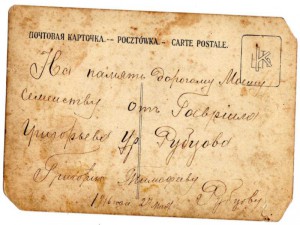 ПОЧТОВАЯ КАРТОЧКА.— POCZTÓWKA.— CARTE POSTALE.
На память Дорогому Моему
семейству отъ Гавриила
Григорьева Рубцова
Григорию
Рубцову